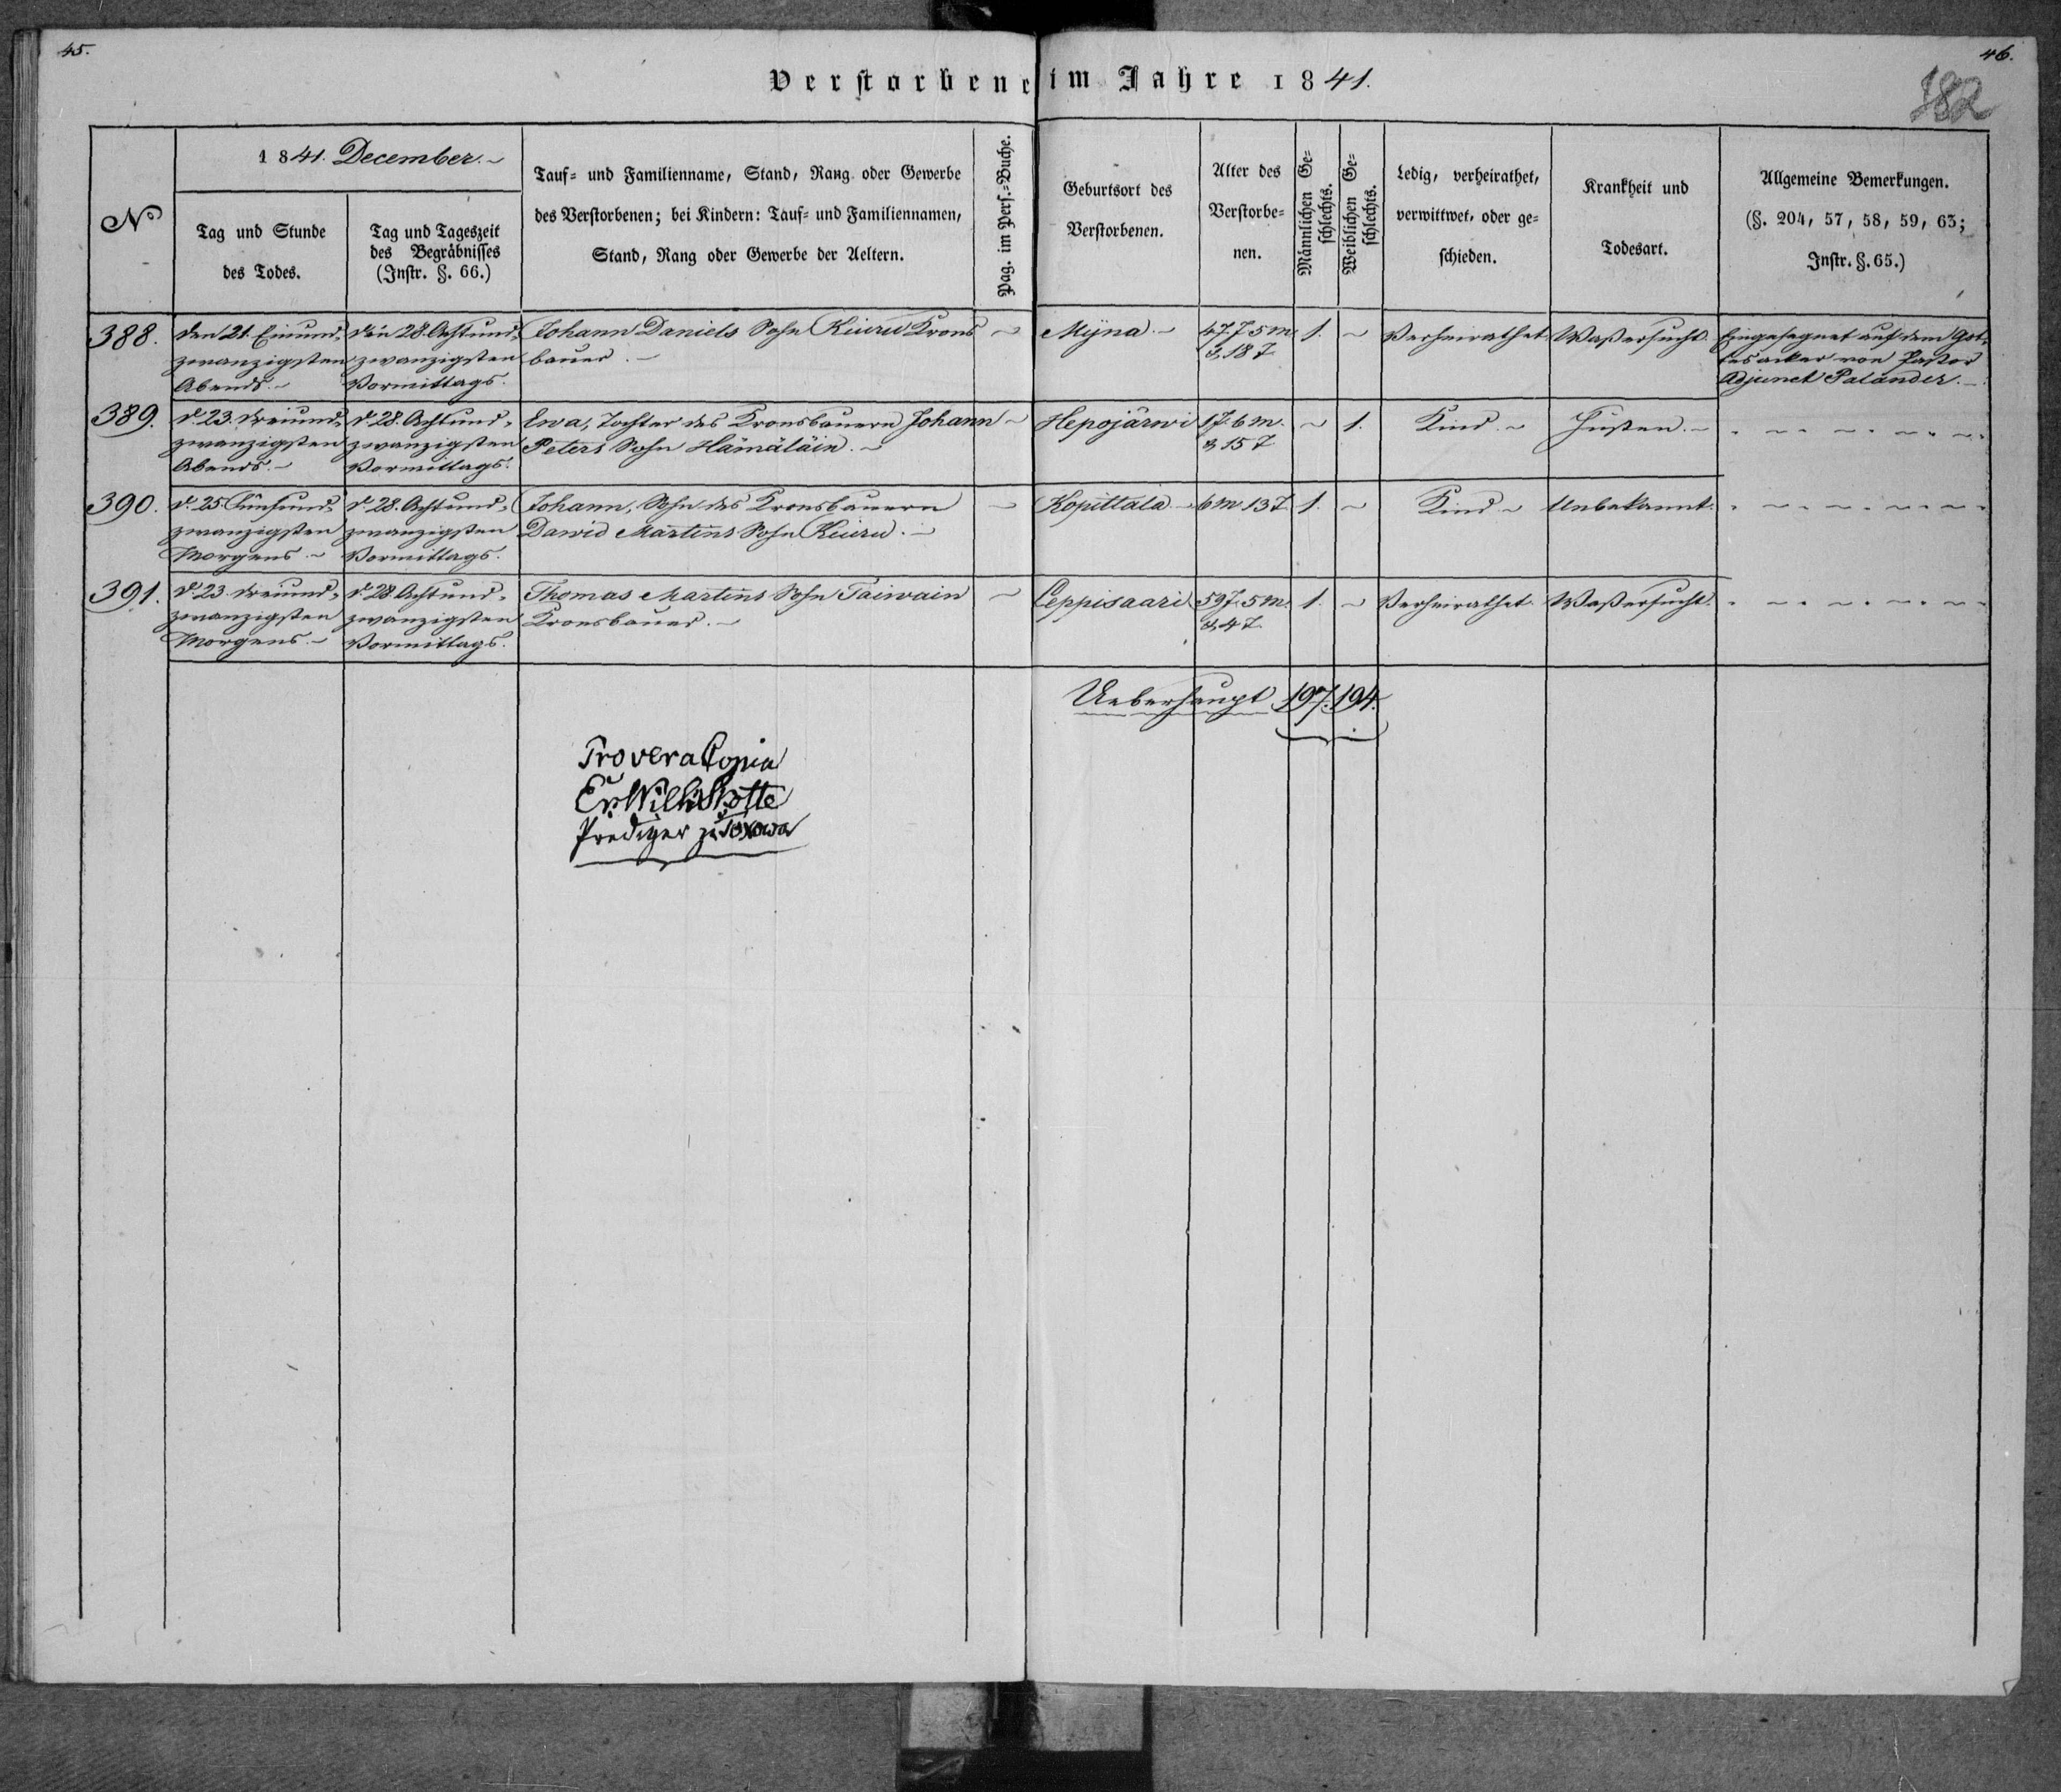 45.
46.
Verstorbene im Jahre 1841.
182
No
1841. December.~
Tag und Stunde
des Todes.
Tag und Tageszeit
des Begräbnisses
(Instr. §. 66.)
Tauf- und Familienname, Stand, Rang oder Gewerbe
des Verstorbenen; bei Kindern: Tauf- und Familiennamen,
Stand, Rang oder Gewerbe der Aeltern.
Pag. im Pers.-Buche.
Geburtsort des
Verstorbenen.
Alter des
Verstorbe-
nen.
Männlichen Ge-
schlechts.
Weiblichen Ge-
schlechts.
Ledig, verheirathet,
verwittwet, oder ge-
schieden.
Krankheit und
Todesart.
Allgemeine Bemerkungen.
(§. 204, 57, 58, 59, 63;
Instr. §. 65.)
388. den 21. Einund- den 28. Achtund- Johann Daniels Sohn Kiuru Krons ~ Mÿna ~ 47 J 5 m 1. ~ Verheirathet Waßersucht. Eingesegnet auf dem Got-
zwanzigsten zwanzigsten bauer. ~ & 18 T tesacker von Pastor
Abends. ~ Vormittags. Adjunct Palander. ~
389. d. 23. Dreiund- d. 28. Achtund- Ewa, Tochter des Kronsbauern Johann ~ Hepojärwi 1 J. 6 m. ~ 1. Kind. ~ Husten. ~
zwanzigsten zwanzigsten Peters Sohn Hämäläin. ~ & 15 T
Abends. ~ Vormittags.
390. d. 25. Fünfund- d. 28. Achtund- Johann, Sohn des Kronsbauern ~ Kopittala 6 m 13 T 1. ~ Kind ~ Unbekannt.
zwanzigsten zwanzigsten Dawid Martins Sohn Kiuru. ~
Morgens ~ Vormittags.
391. d. 23. Dreiund- d. 28 Achtund- Thomas Martins Sohn Taiwain ~ Leppisaari 59 J. 5 m. 1. ~ Verheirathet Waßersucht.
zwanzigsten zwanzigsten Kronsbauer. ~ & 4 T.
Morgens. ~ Vormittags.
Ueberhaupt 197. 194.
Pro vera Copia
Prediger zu Toxowa